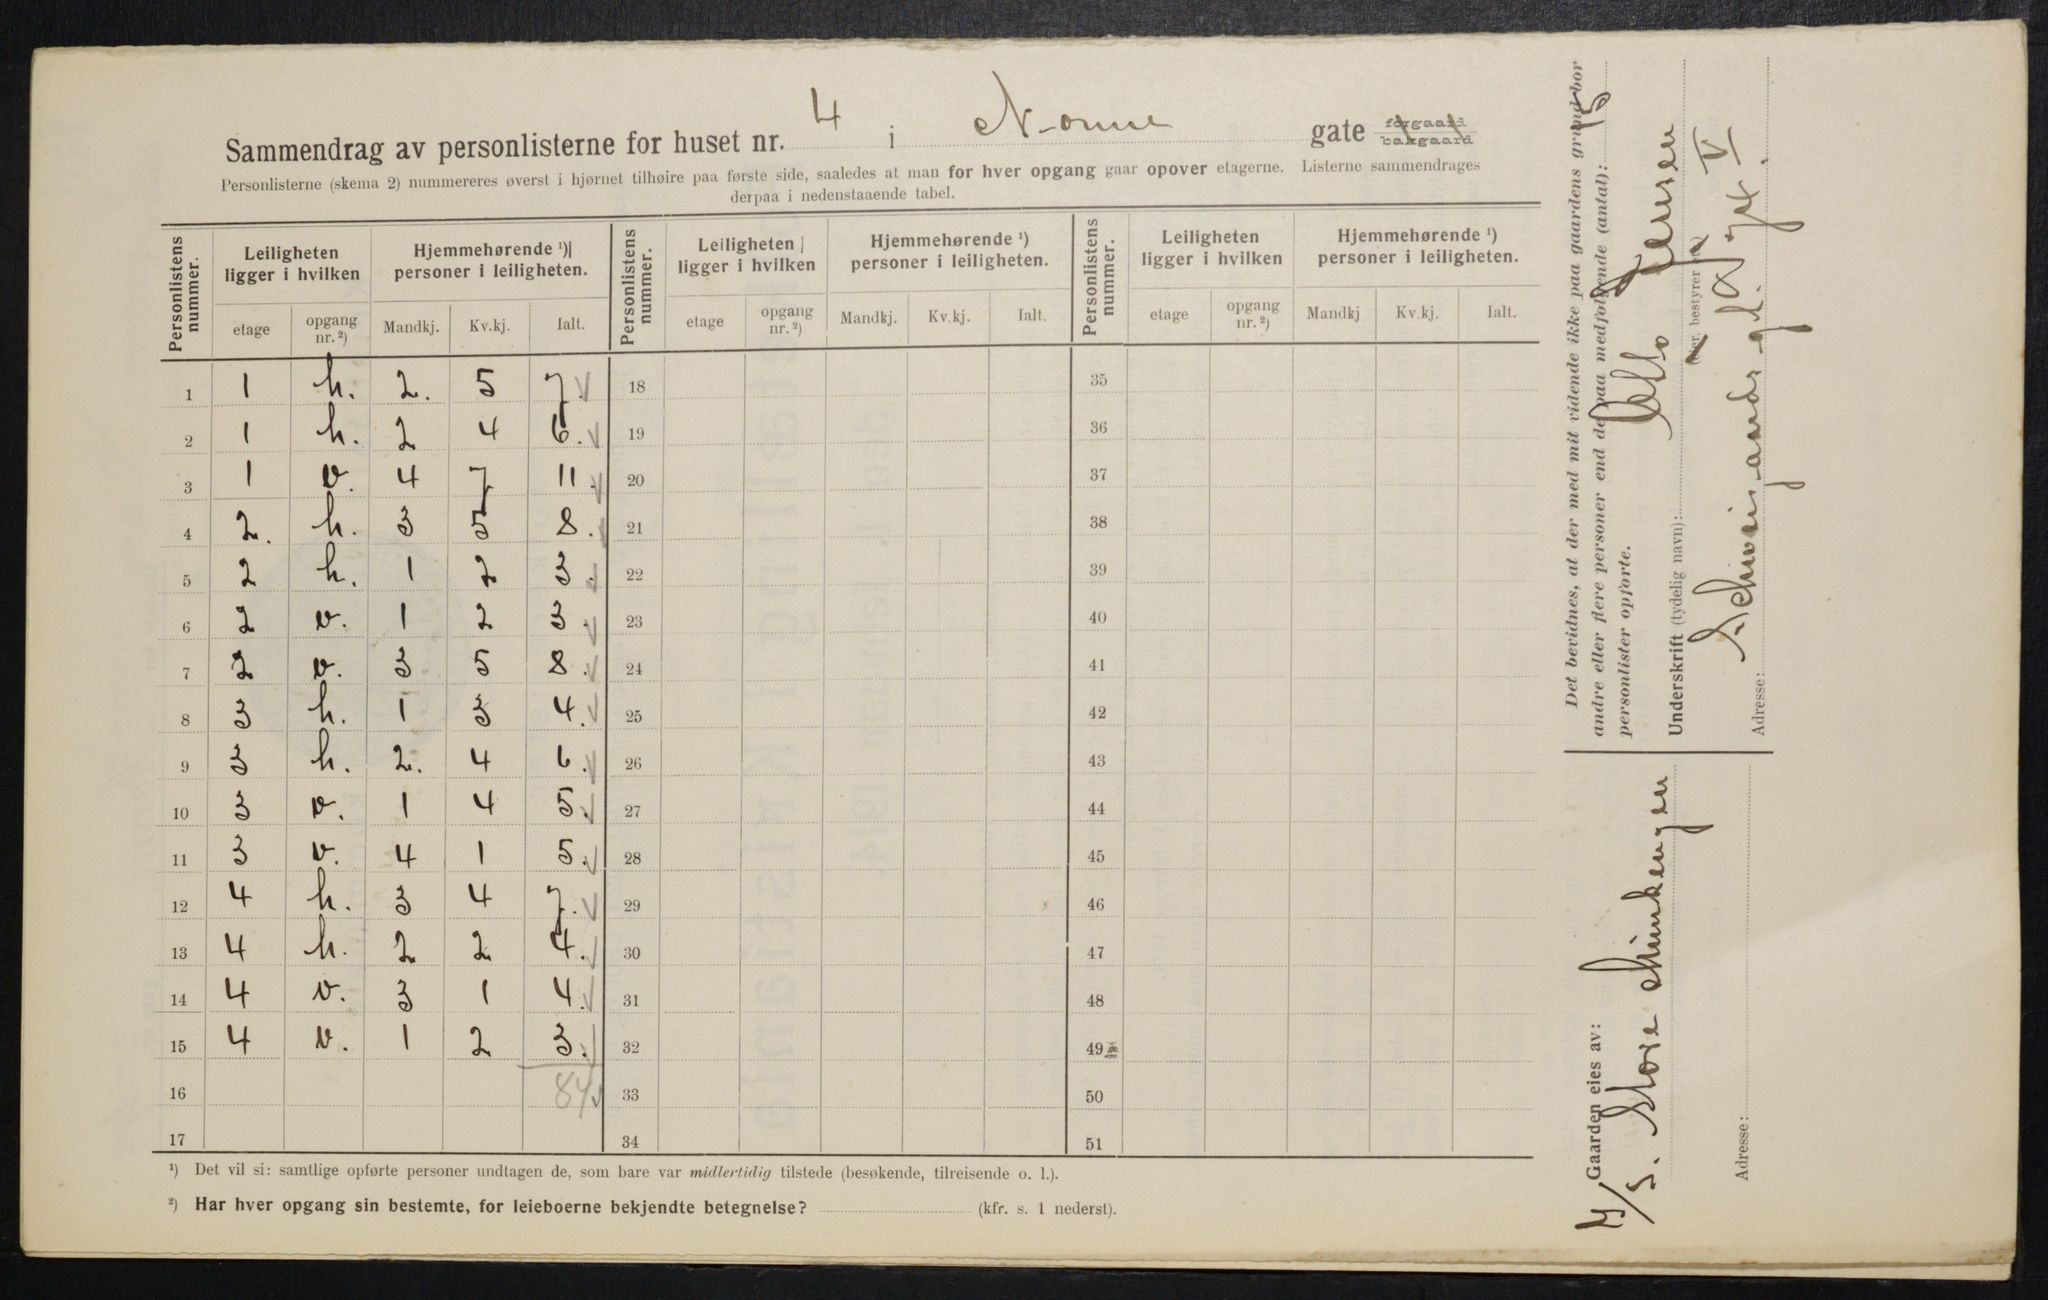 Sammendrag av personlisterne for huset nr. 4 i Nonne gate forgaard bakgaard
Personlisterne (skema 2) nummereres øverst i hjørnet tilhøire paa første side, saaledes at man for hver opgang gaar opover etagerne. Listerne sammendrages
derpaa i nedenstaaende tabel.
Personlistens nummer. Leiligheten ligger i hvilken Hjemmehørende ¹) personer i leiligheten. Personlistens nummer. Leiligheten ligger i hvilken Hjemmehørende ¹) personer i leiligheten. Personlistens nummer. Leiligheten ligger i hvilken Hjemmehørende ¹) personer i leiligheten.
etage opgang nr. ²) Mandkj. Kv.kj. Ialt. etage opgang nr. ²) Mandkj. Kv.kj. Ialt. etage opgang nr. ²) Mandkj Kv.kj. Ialt.
1 1 h. 2. 5 7. 18 35
2 1 h. 2 4 6. 19 36
3 1 v. 4 7 11. 20 37
4 2. h. 3 5 8. 21 38
5 2 h. 1 2 3. 22 39
6 2 v. 1 2 3. 23 40
7 2 v. 3 5 8. 24 41
8 3 h. 1 3 4. 25 42
9 3 h. 2. 4 6. 26 43
10 3 v. 1 4 5. 27 44
11 3 v. 4 1 5. 28 45
12 4 h. 3 4 7. 29 46
13 4 h. 2 2 4. 30 47
14 4 v. 3 1 4. 31 48
15 4 v. 1 2 3. 32 49
16 84 33 50
17 34 51
¹) Det vil si: samtlige opførte personer undtagen de, som bare var midlertidig tilstede (besøkende, tilreisende o. l.).
²) Har hver opgang sin bestemte, for leieboerne bekjendte betegnelse? (kfr. s. 1 nederst).
Det bevidnes, at der med mit vidende ikke paa gaardens grund bor
andre eller flere personer end de paa medfølgende (antal): 15
personlister opførte.
Underskrift (tydelig navn): Jensen
(eier, bestyrer etc.)
Adresse:
Gaarden eies av:
A/S. Store
Adresse: